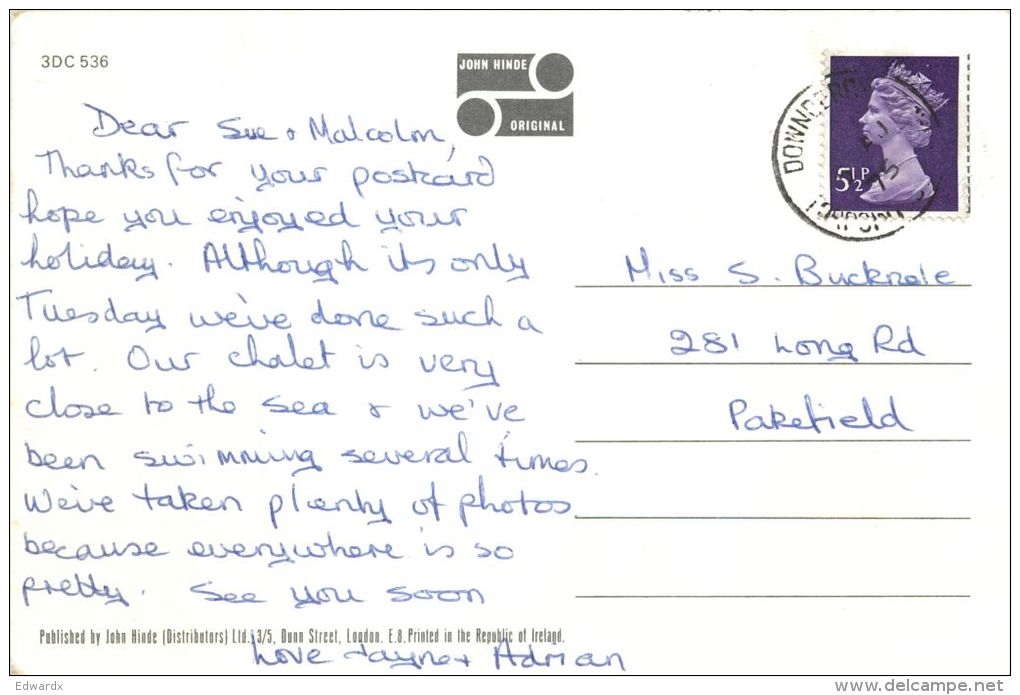 3DC 536
JOHN HINDE
ORIGINAL
5½P
Dear Sue & Malcolm,
Thanks for your postcard
hope you enjoyed your
holiday. Although its only
Tuesday we've done such a
lot. Our chalet is very
close to the sea & we've
been swimming several times.
We've taken plenty of photos
because everywhere is so
pretty. See you soon
Love Jayne & Adrian
Miss S. Bucknole
281 Long Rd
Pakefield
Published by John Hinde (Distributors) Ltd. 3/5, Dunn Street, London. E.8. Printed in the Republic of Ireland.
Edwardx
delcampe.net